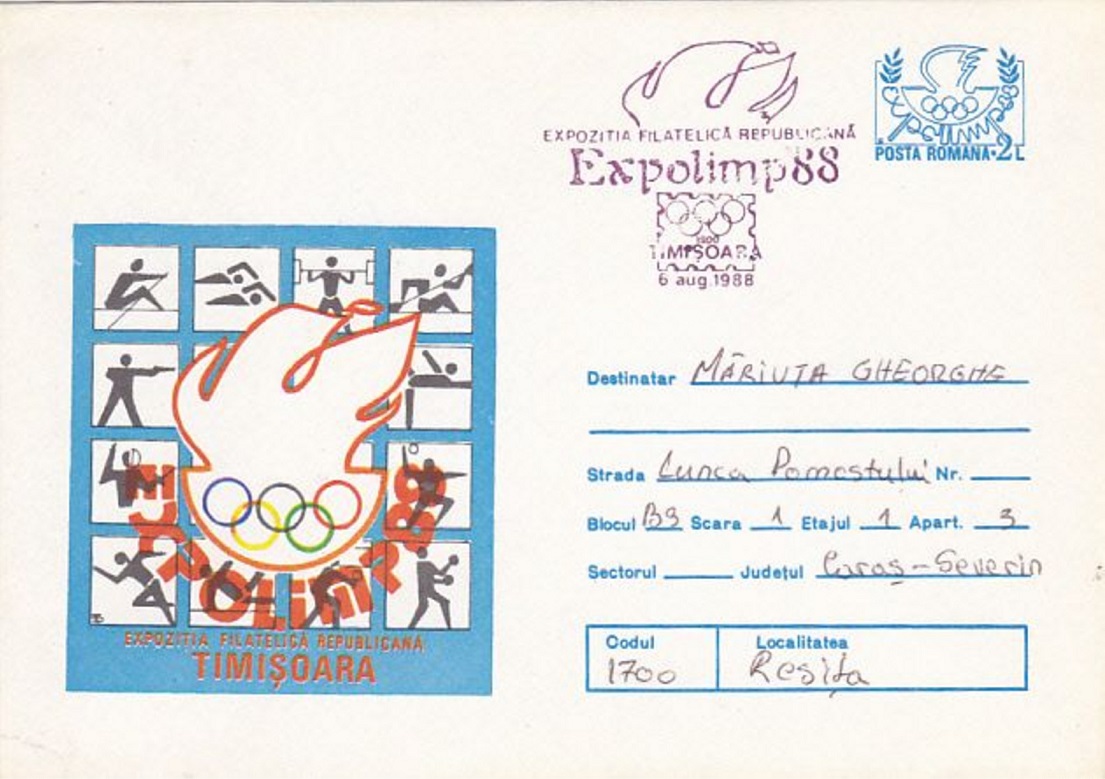 EXPOZITIA FILATELICĂ REPUBLICANĂ
Expolimp88
1900
TIMIŞOARA
6 aug.1988
Expolimp
POSTA ROMANA·2L
EXPOLimP88
EXPOZITIA FILATELICĂ REPUBLICANĂ
TIMIŞOARA
Destinatar MĂRIUȚA GHEORGHE
Strada Lunca Pomostului Nr.
Blocul B9 Scara 1 Etajul 1 Apart. 3
Sectorul Judeţul Caraş-Severin
Codul Localitatea
1700 Reşiţa